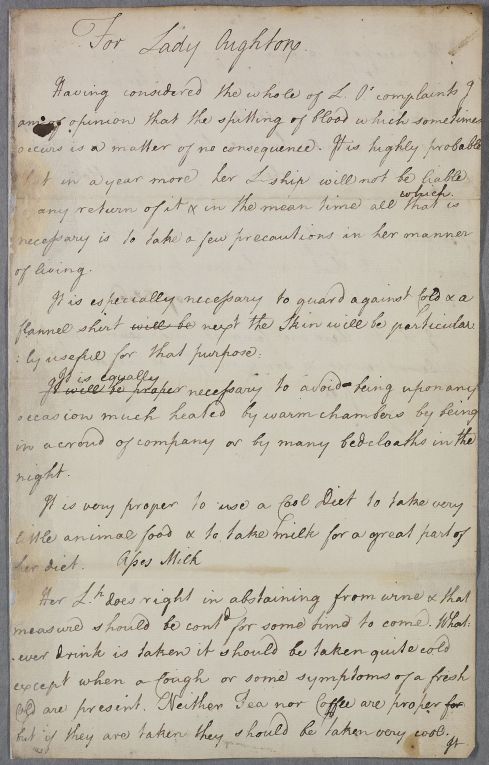 For Lady Oughton
Having considered the whole of L. O's complaints I
am of opinion that the spitting of blood which sometimes
occurs is a matter of no consequence. It is highly probable
that in a year more her L.ship will not be liable
which
any return of it & in the mean time all that is
necessary is to take a few precautions in her manner
of living.
It is especially necessary to guard against Cold & a
flannel shirt will be next the Skin will be particular
: ly useful for that purpose.
It is equally
It will be proper necessary to avoid being upon any
occasion much heated by warm chambers by being
in a croud of company or by many bedcloaths in the
night.
It is very proper to use a Cool Diet to take very
little animal food & to take milk for a great part of
her diet. Asses Milk
Her L.p does right in abstaining from wine & that
measure should be contd for some time to come. What
-ever drink is taken it should be taken quite cold
except when a Cough or some symptoms of a fresh
Cold are present. Neither Tea nor Coffee are proper for
but if they are taken they should be taken very cool.
It